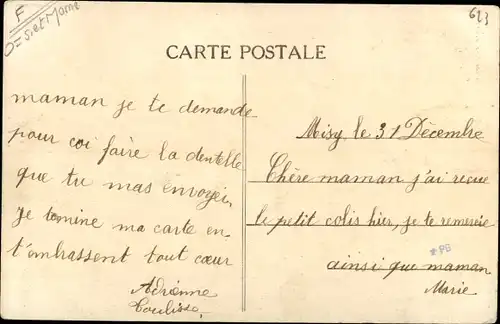 F
Dt Set Marne
623
CARTE POSTALE
Misy le 31 Décembre
Chère maman j'ai recue
le petit colis hier, je te remercie
ainsi que maman
Marie
maman je te demande
pour coi faire la dentelle
que tu mas envoyei,
je termine ma carte en
t'embrassent tout cœur
Adrienne
Coulisse,